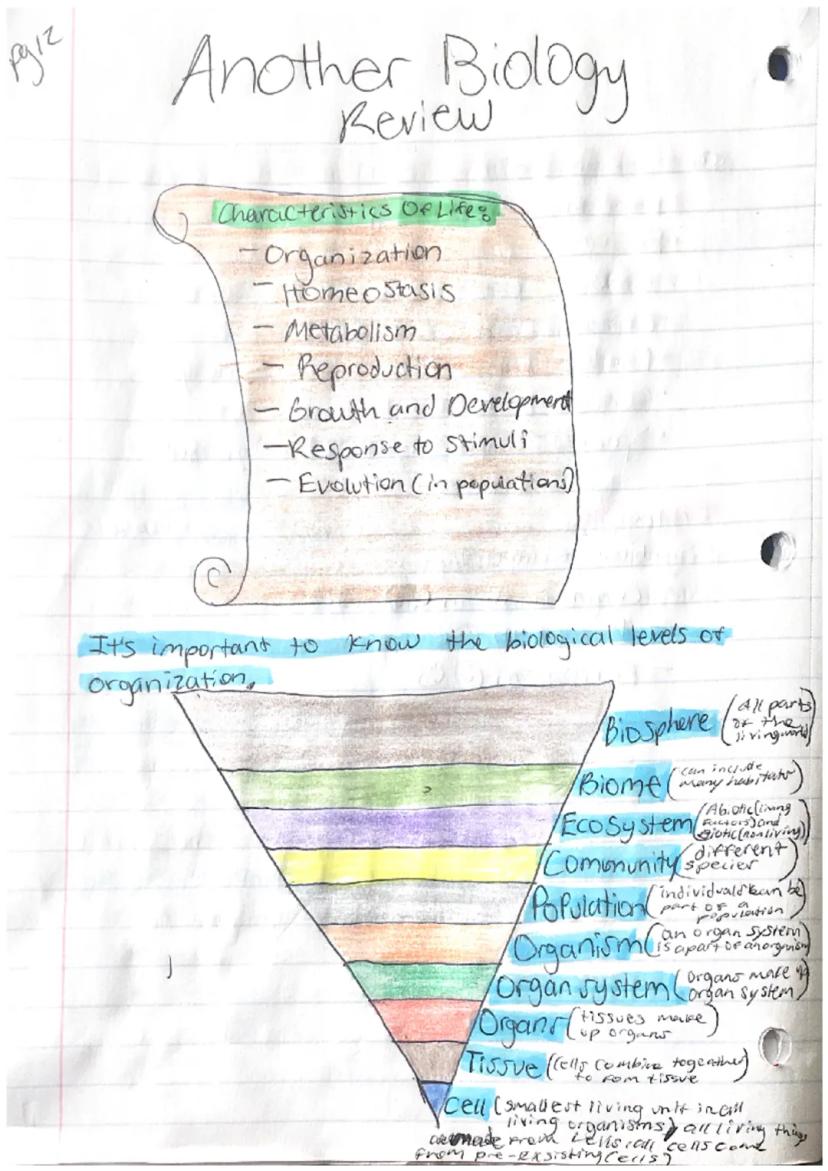 pg 12
Another Biology
Review
Characteristics Of Life:
- Organization
- Homeostasis
- Metabolism
- Reproduction
- Growth and Development
- Response to Stimuli
- Evolution (in populations)
It's important to know the biological levels of
organization.
Biosphere (All parts
of the
living world)
Biome (can include
many habitats)
Ecosystem (Abiotic (living
factors) and
Biotic (nonliving))
Community (different
species)
Population (individuals can be
part of a
population)
Organism (an organ system
is apart of an organism)
Organ system (organs make
organ system)
Organs (tissues make
up organs)
Tissue (cells combine togeather
to form tissue
Cell (smallest living unit in all
living organisms) all living things
made from cells (all cells come
from pre-exsisting cells)